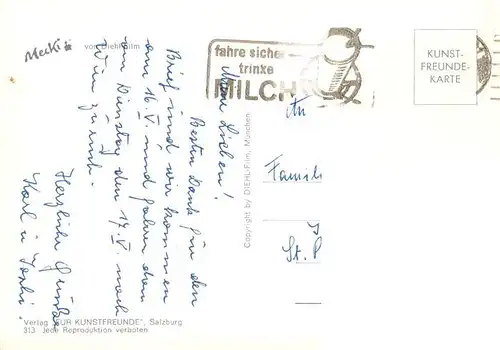 Mecki
vom Diehlfilm
fahre sicher
trinke
MILCH
KUNST-
FREUNDE-
KARTE
Meine Lieben!
Besten Dank für den
Brief und wir kommen
am 16. V. und fahren dann
am Dienstag den 17. V. nach
Wien zurück.
Herzliche Grüße
Karl u.
An
Famili
St. P
Copyright by DIEHL-Film, München
Verlag "FUR KUNSTFREUNDE", Salzburg
313 Jede Reproduktion verboten